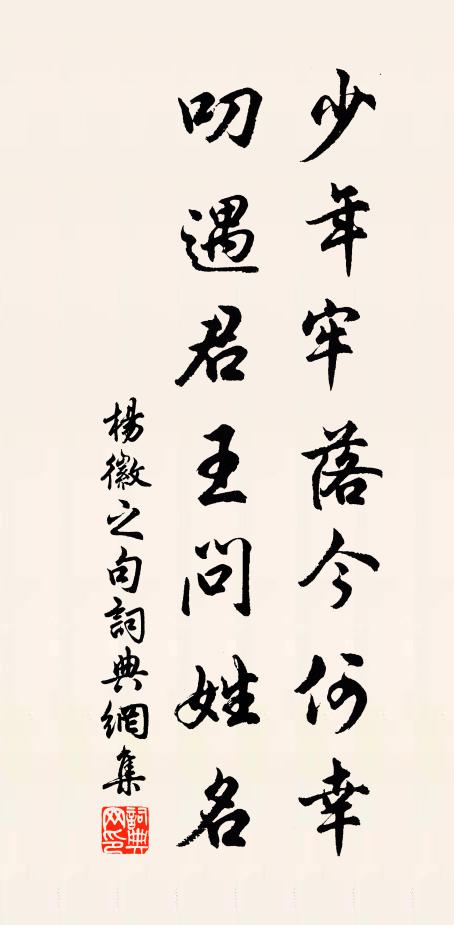 少年牢落今何幸
叨遇君王問姓名
楊徽之句詞典網集
詞典网印